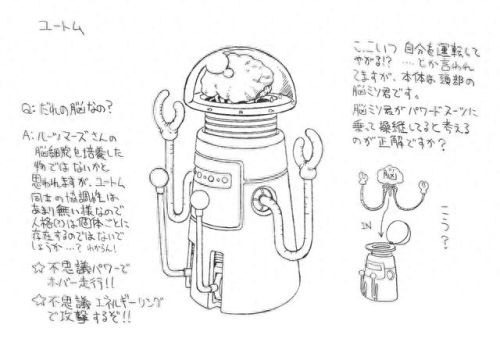 ユートム
Q: だれの脳なの?
A: ルーツマーズさんの
脳細胞を培養した
物ではないかと
思われますが、ユートム
同士の協調性は
あまり無い様なので
人格(?)は個体ごとに
存在するのではないで
しょうか…? わからん!
☆不思議パワーで
ホバー走行!!
☆不思議エネルギーリング
で攻撃するぞ!!
こいつ 自分を運転して
やがる!? …とか言われ
てますが、本体は頭部の
脳ミソ君です。
脳ミソ君がパワードスーツに
乗って操縦してると考える
のが正解ですか?
IN
こう?